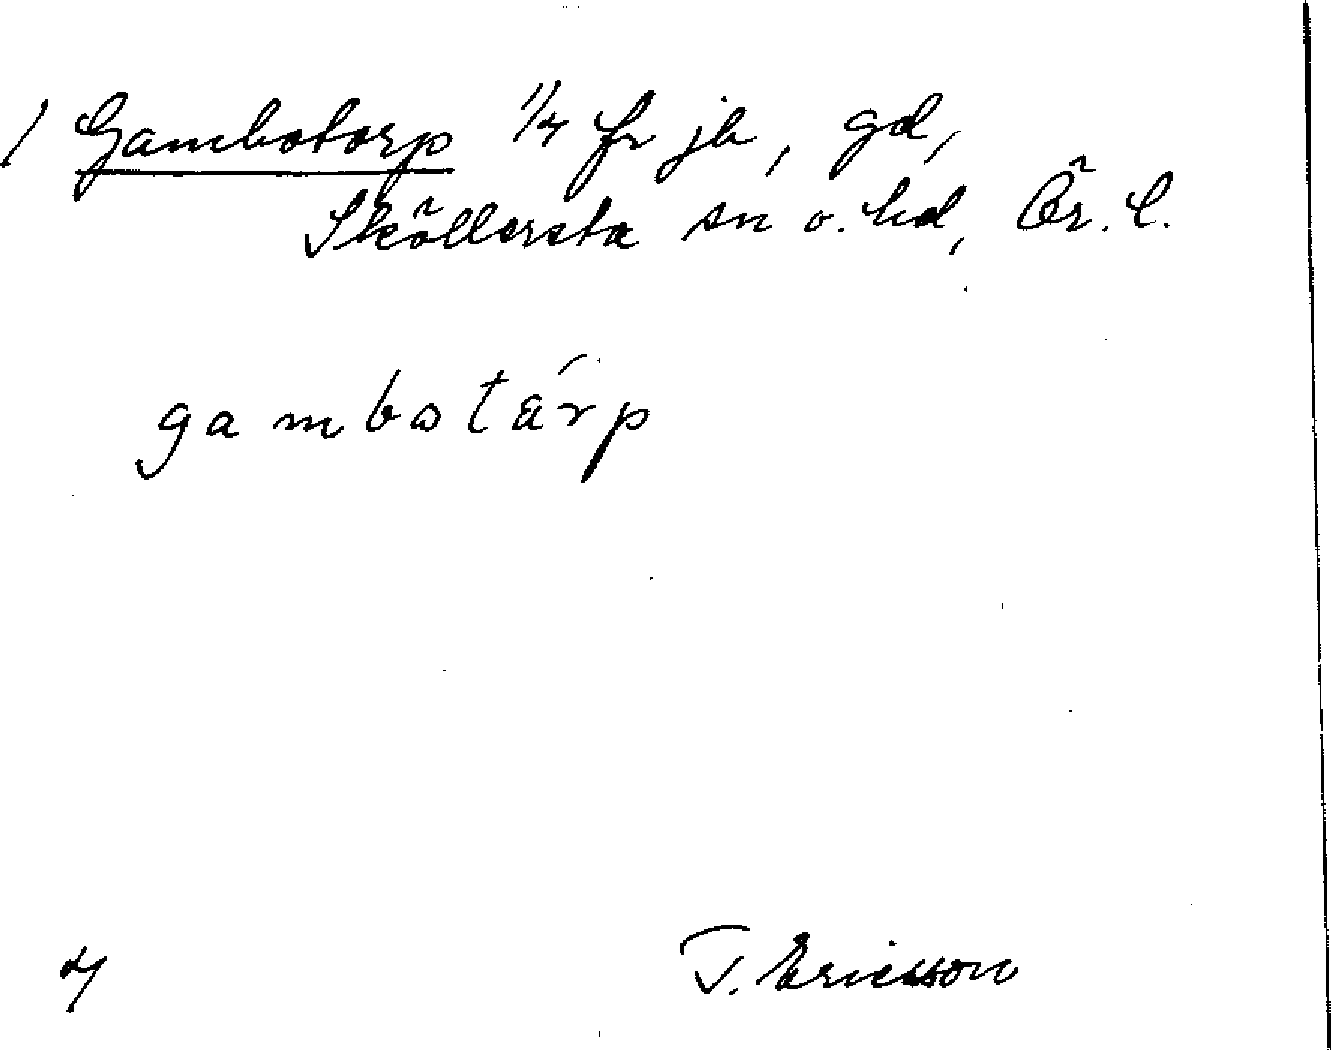 / Gambotorp 1/4 fr jb, gd,
Sköllersta sn o. hd, Ör. l.
gambotårp
4
T. Ericsson